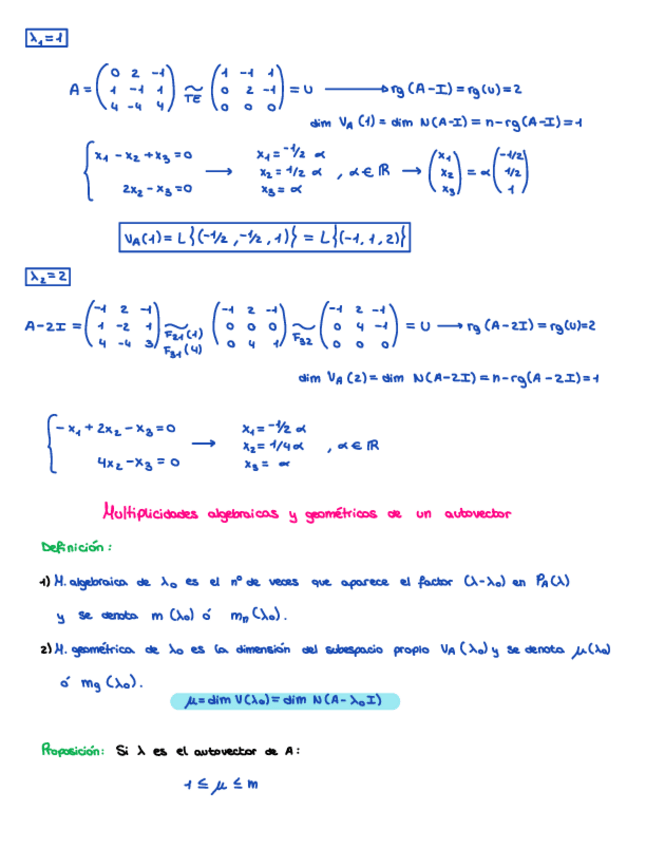 λ₁=1
A = ( 0 2 -1 ; 1 -1 1 ; 4 -4 4 ) ~TE ( 1 -1 1 ; 0 2 -1 ; 0 0 0 ) = U → rg (A-I) = rg(U) = 2
dim V_A (1) = dim N(A-I) = n-rg(A-I) = 1
{ x₁ - x₂ + x₃ = 0 ; 2x₂ - x₃ = 0 → x₁ = -1/2 α ; x₂ = 1/2 α ; x₃ = α , α ∈ ℝ → ( x₁ ; x₂ ; x₃ ) = α ( -1/2 ; 1/2 ; 1 )
V_A(1) = L{(-1/2, -1/2, 1)} = L{(-1, 1, 2)}
λ₂=2
A-2I = ( -1 2 -1 ; 1 -2 1 ; 4 -4 3 ) ~ F₂₁(1) F₃₁(4) ( -1 2 -1 ; 0 0 0 ; 0 4 1 ) ~ F₃₂ ( -1 2 -1 ; 0 4 -1 ; 0 0 0 ) = U → rg (A-2I) = rg(U) = 2
dim V_A (2) = dim N(A-2I) = n-rg(A-2I) = 1
{ -x₁ + 2x₂ - x₃ = 0 ; 4x₂ - x₃ = 0 → x₁ = -1/2 α ; x₂ = 1/4 α ; x₃ = α , α ∈ ℝ
Multiplicidades algebraicas y geométricas de un autovector
Definición:
1) M. algebraica de λ₀ es el nº de veces que aparece el factor (λ-λ₀) en P_A(λ)
y se denota m (λ₀) ó m_n (λ₀).
2) M. geométrica de λ₀ es la dimensión del subespacio propio V_A (λ₀) y se denota μ(λ₀)
ó m_g (λ₀).
μ = dim V(λ₀) = dim N(A-λ₀I)
Proposición: Si λ es el autovector de A:
1 ≤ μ ≤ m